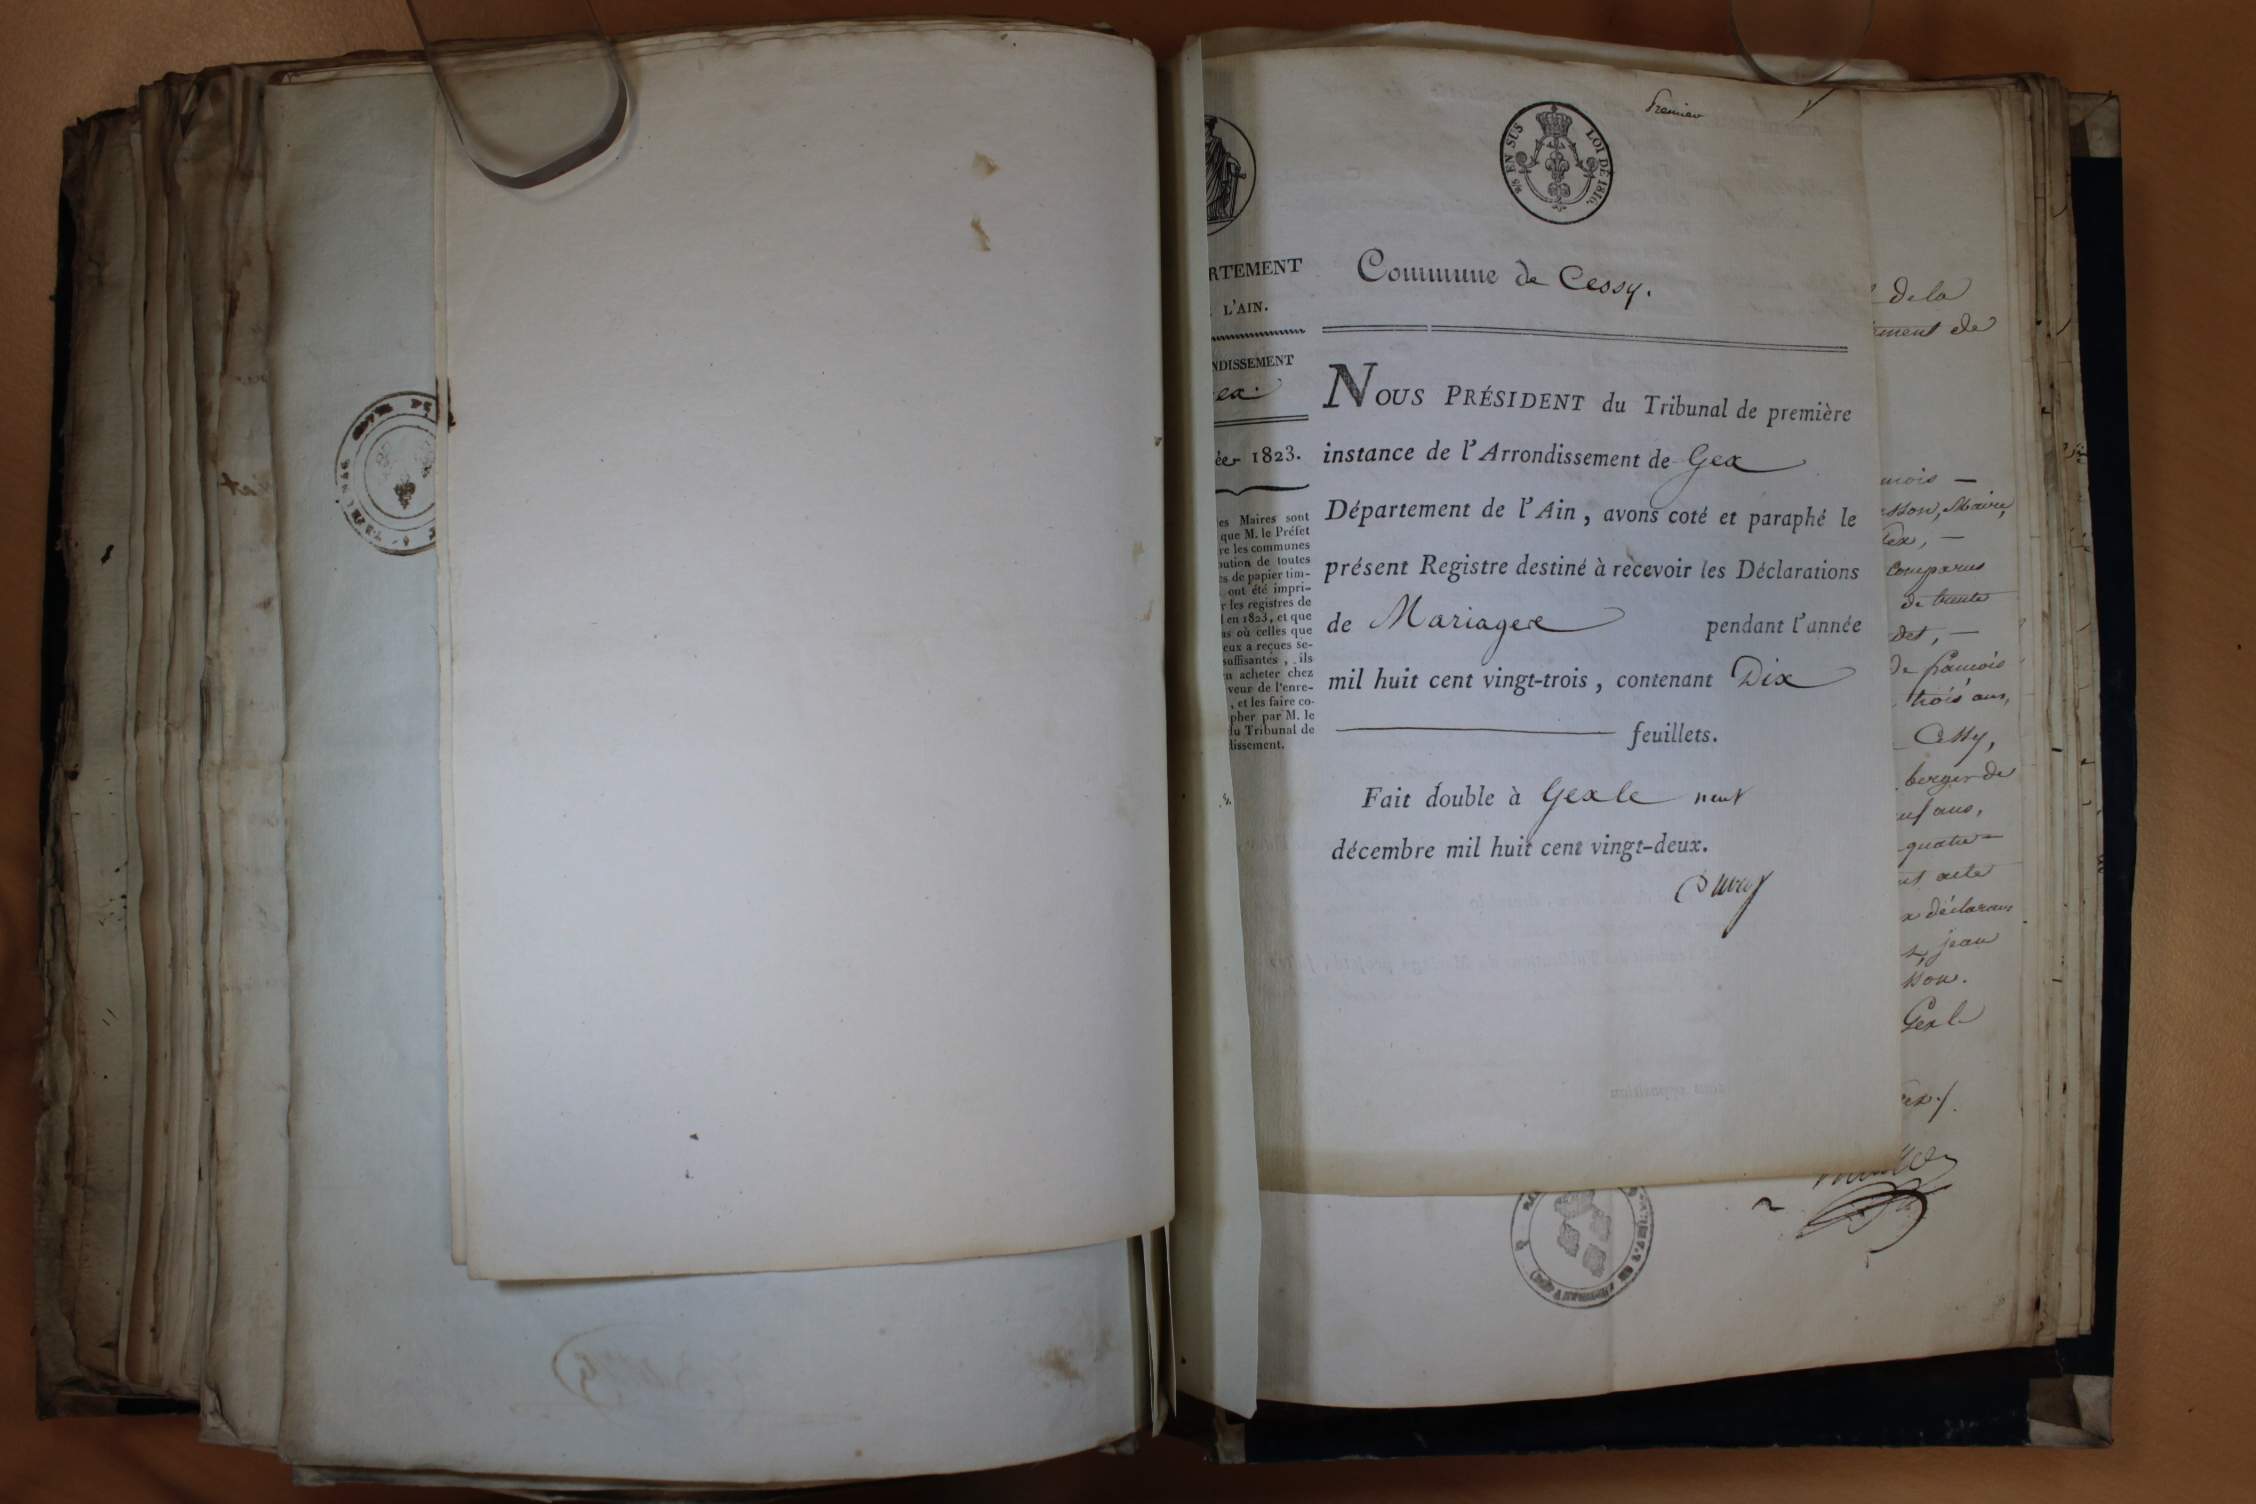 Premier
5/5 EN SUS LOI DE 1816.
RTEMENT
L'AIN.
NDISSEMENT
ex.
ée 1823.
es Maires sont
que M. le Préfet
re les communes
bution de toutes
es de papier tim-
ont été impri-
r les registres de
l en 1823, et que
as où celles que
eux a reçues se-
suffisantes, ils
n acheter chez
veur de l'enre-
, et les faire co-
pher par M. le
du Tribunal de
dissement.
Commune de Cessy.
NOUS PRÉSIDENT du Tribunal de première
instance de l'Arrondissement de Gex
Département de l'Ain, avons coté et paraphé le
présent Registre destiné à recevoir les Déclarations
de Mariages pendant l'année
mil huit cent vingt-trois, contenant Dix
feuillets.
Fait double à Gex le neuf
décembre mil huit cent vingt-deux.
de la
ement de
ncois
sson, Maire
Gex,
comparus
de trente
det,
de francois
trois ans,
Cessy,
berger de
uf ans,
quatre
nt acte
x déclarans
jean
sson.
Gex le
ex.